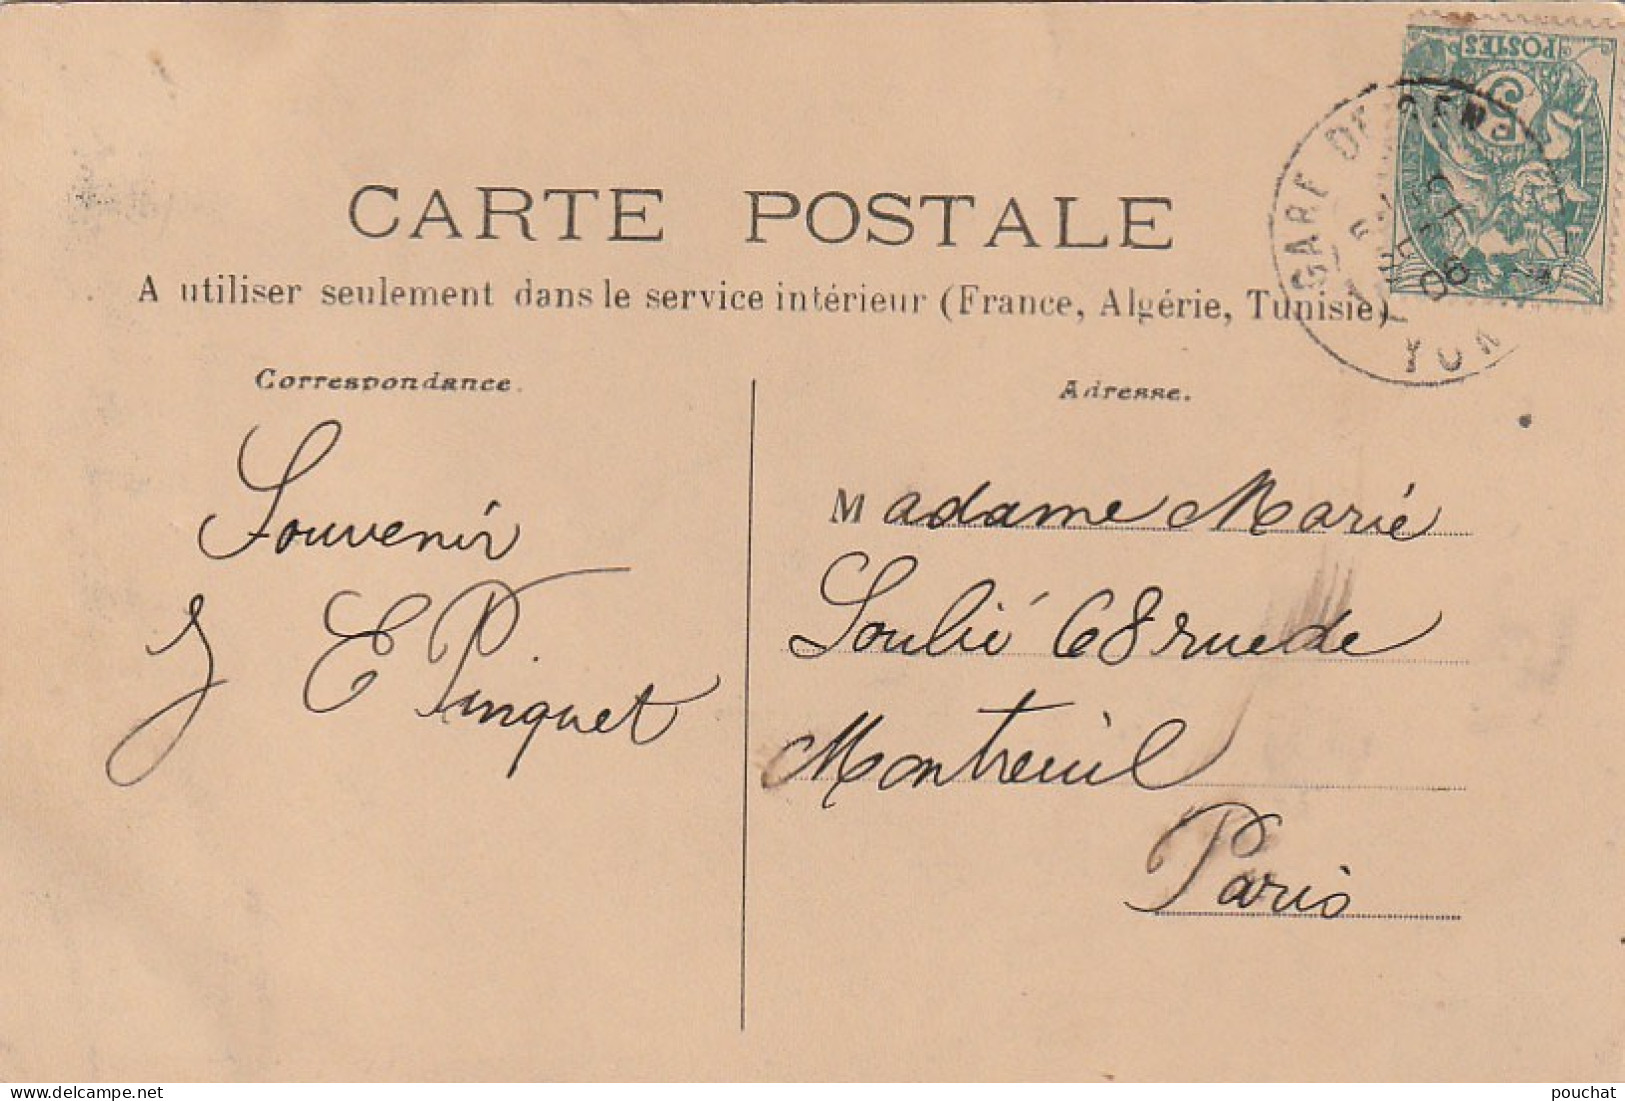 POSTES
5
GARE DE
06
YON
CARTE POSTALE
A utiliser seulement dans le service intérieur (France, Algérie, Tunisie)
Correspondance.
Souvenir
E Pinquet
Adresse.
Madame Marié
Soulié 68 rue de
Montreuil
Paris
delcampe.net
pouchat